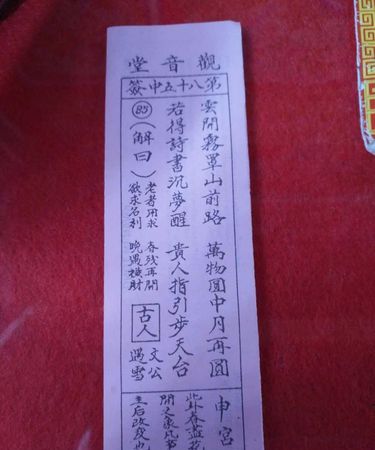 觀音堂
第八十五中簽
雲開霧罩山前路 萬物圓中月再圓
若得詩書沉夢醒 貴人指引步天台
85
(解曰)
老者用求
欲求名利
春残再開
晚遇橫財
古人
文公
遇雪
申宮
此卦春花
開之象凡事